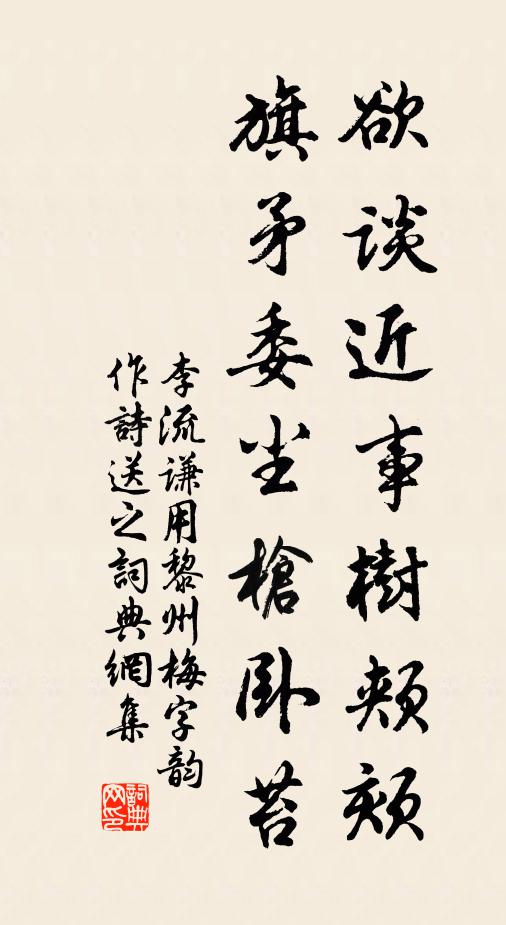 欲谈近事樹頰頦
旗矛委尘槍卧苔
李流谦用黎州梅字韵
作詩送之詞典網集
詞典网印